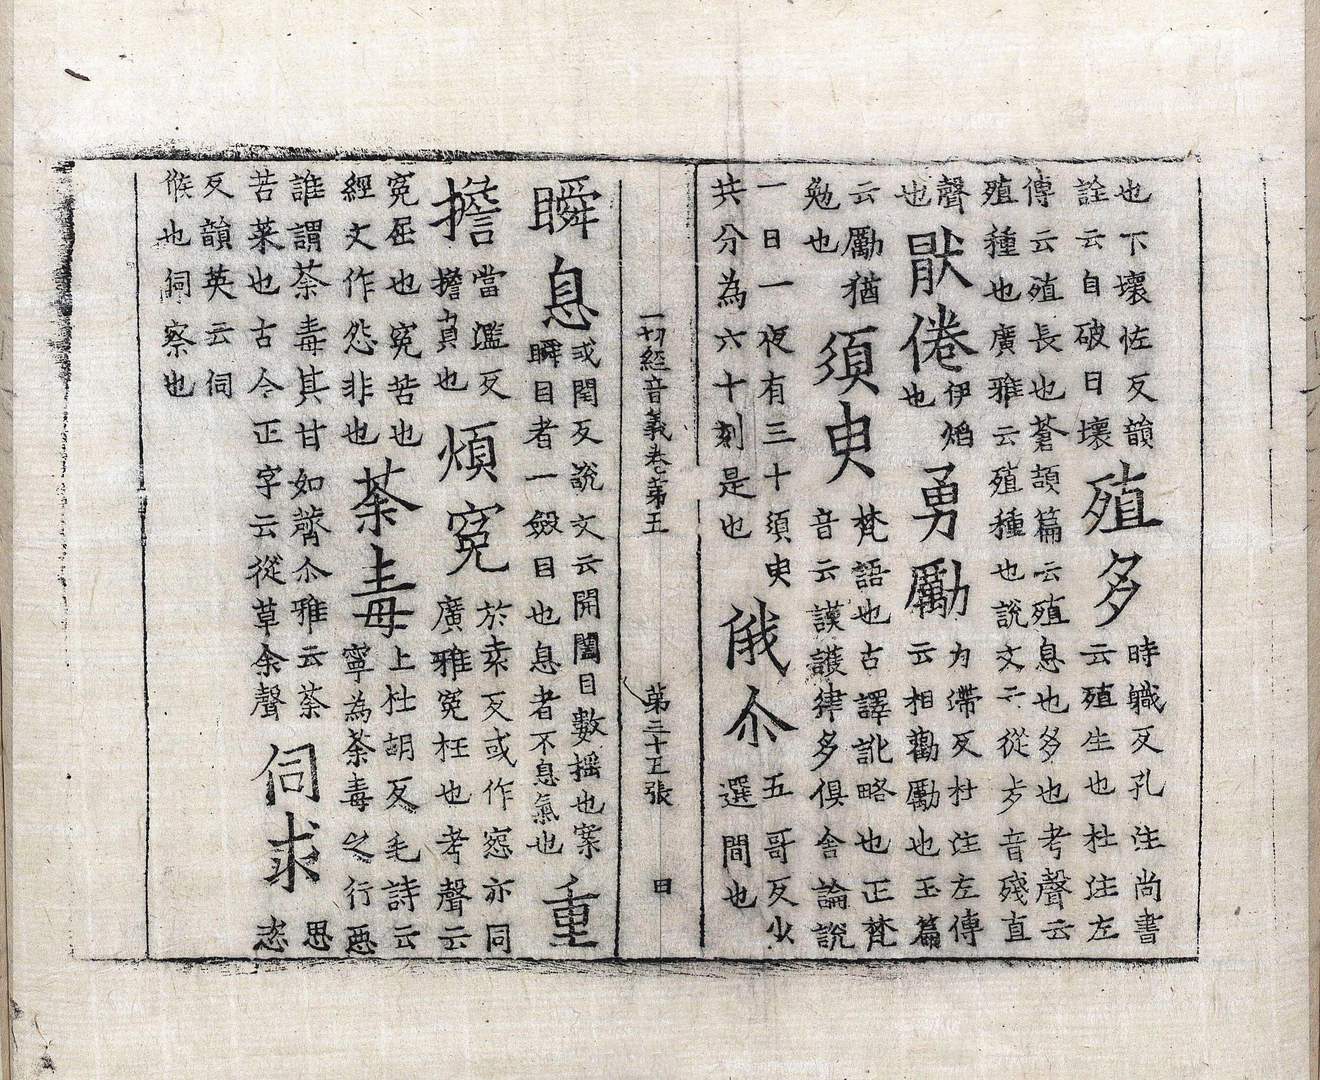 也下壞佐反韻
詮云自破曰壞
殖多
時職反孔注尚書
云殖生也杜注左
傳云殖長也蒼頡篇云殖息也多也考聲云
殖種也廣雅云殖種也說文云從歹音殘直
聲
也
猒倦
伊焰
也
勇勵
力滯反杜注左傳
云相勸勵也玉篇
云勵猶
勉也
須臾
梵語也古譯訛略也正梵
音云謨護律多俱舍論說
一日一夜有三十須臾
共分為六十刻是也
俄尒
五哥反少
選間也
一切經音義卷第五 第三十五張 日
瞬息
或閏反說文云開闔目數搖也案
瞬目者一斂目也息者不息氣也
重
擔
當濫反
擔負也
煩冤
於袁反或作惌亦同
廣雅冤枉也考聲云
冤屈也冤苦也
經文作怨非也
荼毒
上杜胡反毛詩云
寧為荼毒之行惡
誰謂荼毒其甘如薺尒雅云荼
苦菜也古今正字云從草余聲
伺求
思
恣
反韻英云伺
候也伺察也